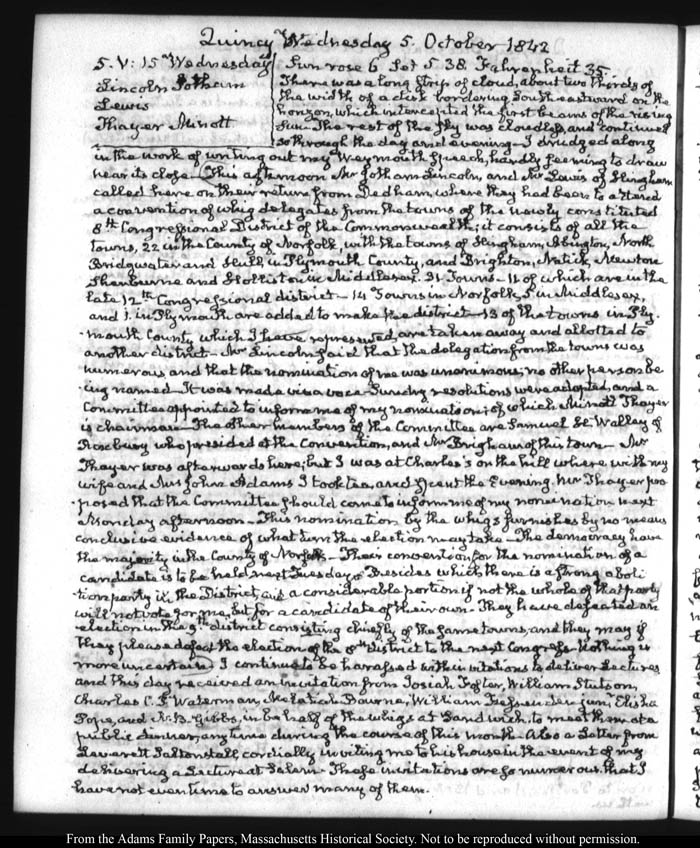 Quincy Wednesday 5. October 1842
5. V: 15 m Wednesday
Lincoln Jotham
Lewis
Thayer Minott
Sun rose 6 Set 5. 38. Fahrenheit 35
There was a long strip of cloud, about two thirds of
the width of a disk bordering Southeastward on the
horizon, which intercepted the first beams of the rising
Sun. The rest of the sky was cloudless, and continued
so through the day and evening. I drudged along
in the work of writing out my Weymouth Speech, hardly seeming to draw
near its close. This afternoon Mr Jotham Lincoln, and Mr Lewis of Hingham
called here on their return from Dedham, where they had been to attend
a convention of whig delegates from the towns of the newly constituted
8th Congressional District of the Commonwealth; it consists of all the
towns, 22 in the County of Norfolk, with the towns of Hingham, Abington, North
Bridgwater and Hull, in Plymouth County, and Brighton, Natick, Newton
Sherburne and Holliston in Middlesex. 31 Towns - 11 of which are in the
late 12th Congressional district - 14 Towns in Norfolk, 5 in Middlesex,
and 1. in Plymouth are added to make the district - 13 of the towns in Ply-
-mouth County which I have represented, are taken away and allotted to
another district - Mr Lincoln said that the delegation from the towns was
numerous, and that the nomination of me was unanimous; no other person be
ing named - It was made viva voce. Sundry resolutions were adopted, and a
Committee appointed to inform me of my nomination; of which Minott Thayer
is chairman - The other members of the Committee are Samuel H. Walley of
Roxbury who presided at the Convention, and Mr Brigham of this town - Mr
Thayer was afterwards here; but I was at Charles's on the hill where with my
wife and Mrs John Adams I took tea, and spent the Evening. Mr Thayer pro
-posed that the Committee should come to inform me of my nomination next
Monday afternoon - This nomination by the whigs furnishes by no means
conclusive evidence of what turn the election may take - The democracy have
the majority in the County of Norfolk - Their convention for the nomination of a
candidate is to be held next Tuesday. Besides which there is a strong aboli
tion party in the District, and a considerable portion if not the whole of that party
will not vote for me, but for a candidate of their own - They have defeated an
election in the 9th district consisting chiefly of the same towns, and they may if
they please defeat the election of the 8th district to the next Congress. Nothing is
more uncertain. I continue to be harassed with invitations to deliver Lectures
and this day received an invitation from Josiah Foster, William Stutson,
Charles C. P. Waterman, Melatiah Bourne, William Fessenden jun, Elisha
Pope, and Gibbs, in behalf of the whigs at Sandwich, to meet them at a
public dinner, any time during the course of this month. Also a Letter from
Leverett Saltonstall, cordially inviting me to his house in the event of my
delivering a Lecture at Salem - These invitations are so numerous that I
have not even time to answer many of them.
From the Adams Family Papers, Massachusetts Historical Society. Not to be reproduced without permission.